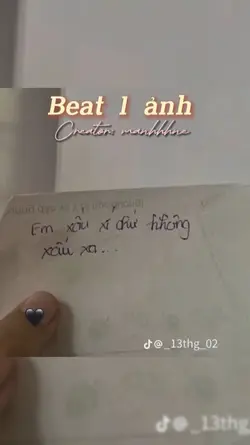 Beat 1 ảnh
Creator: manhhhne
Em xấu xí chứ không
xấu xa...
@_13thg_02
@_13thg_02